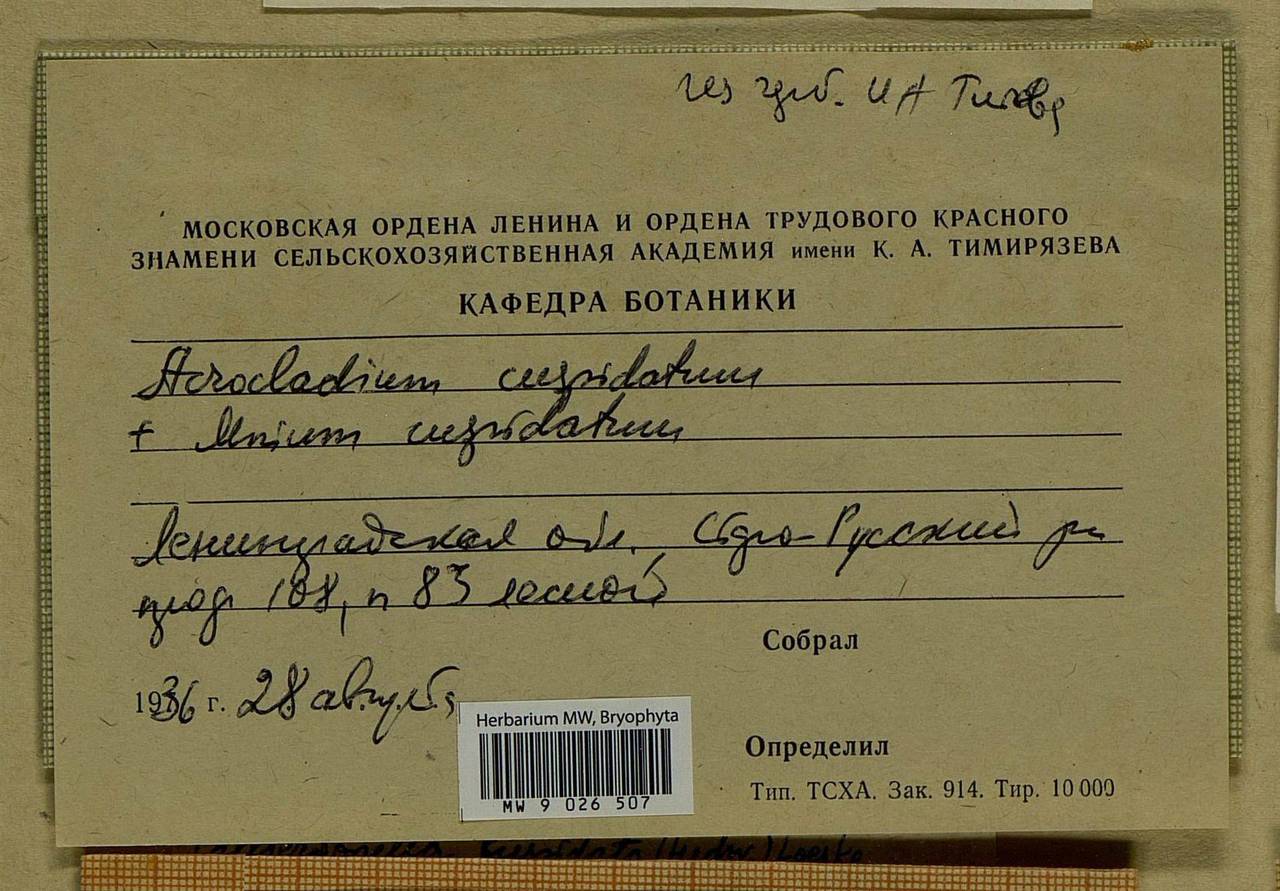 гер. И А Титова
МОСКОВСКАЯ ОРДЕНА ЛЕНИНА И ОРДЕНА ТРУДОВОГО КРАСНОГО
ЗНАМЕНИ СЕЛЬСКОХОЗЯЙСТВЕННАЯ АКАДЕМИЯ имени К. А. ТИМИРЯЗЕВА
КАФЕДРА БОТАНИКИ
Acrocladium cuspidatum
+ Mnium cuspidatum
Ленинградская обл. Старо-Русский рн
108, п 83 лесной
Собрал
1936 г. 28 августа
Herbarium MW, Bryophyta
MW 9 026 507
Определил
Тип. ТСХА. Зак. 914. Тир. 10 000
cuspidata (Hedw.) Loeske